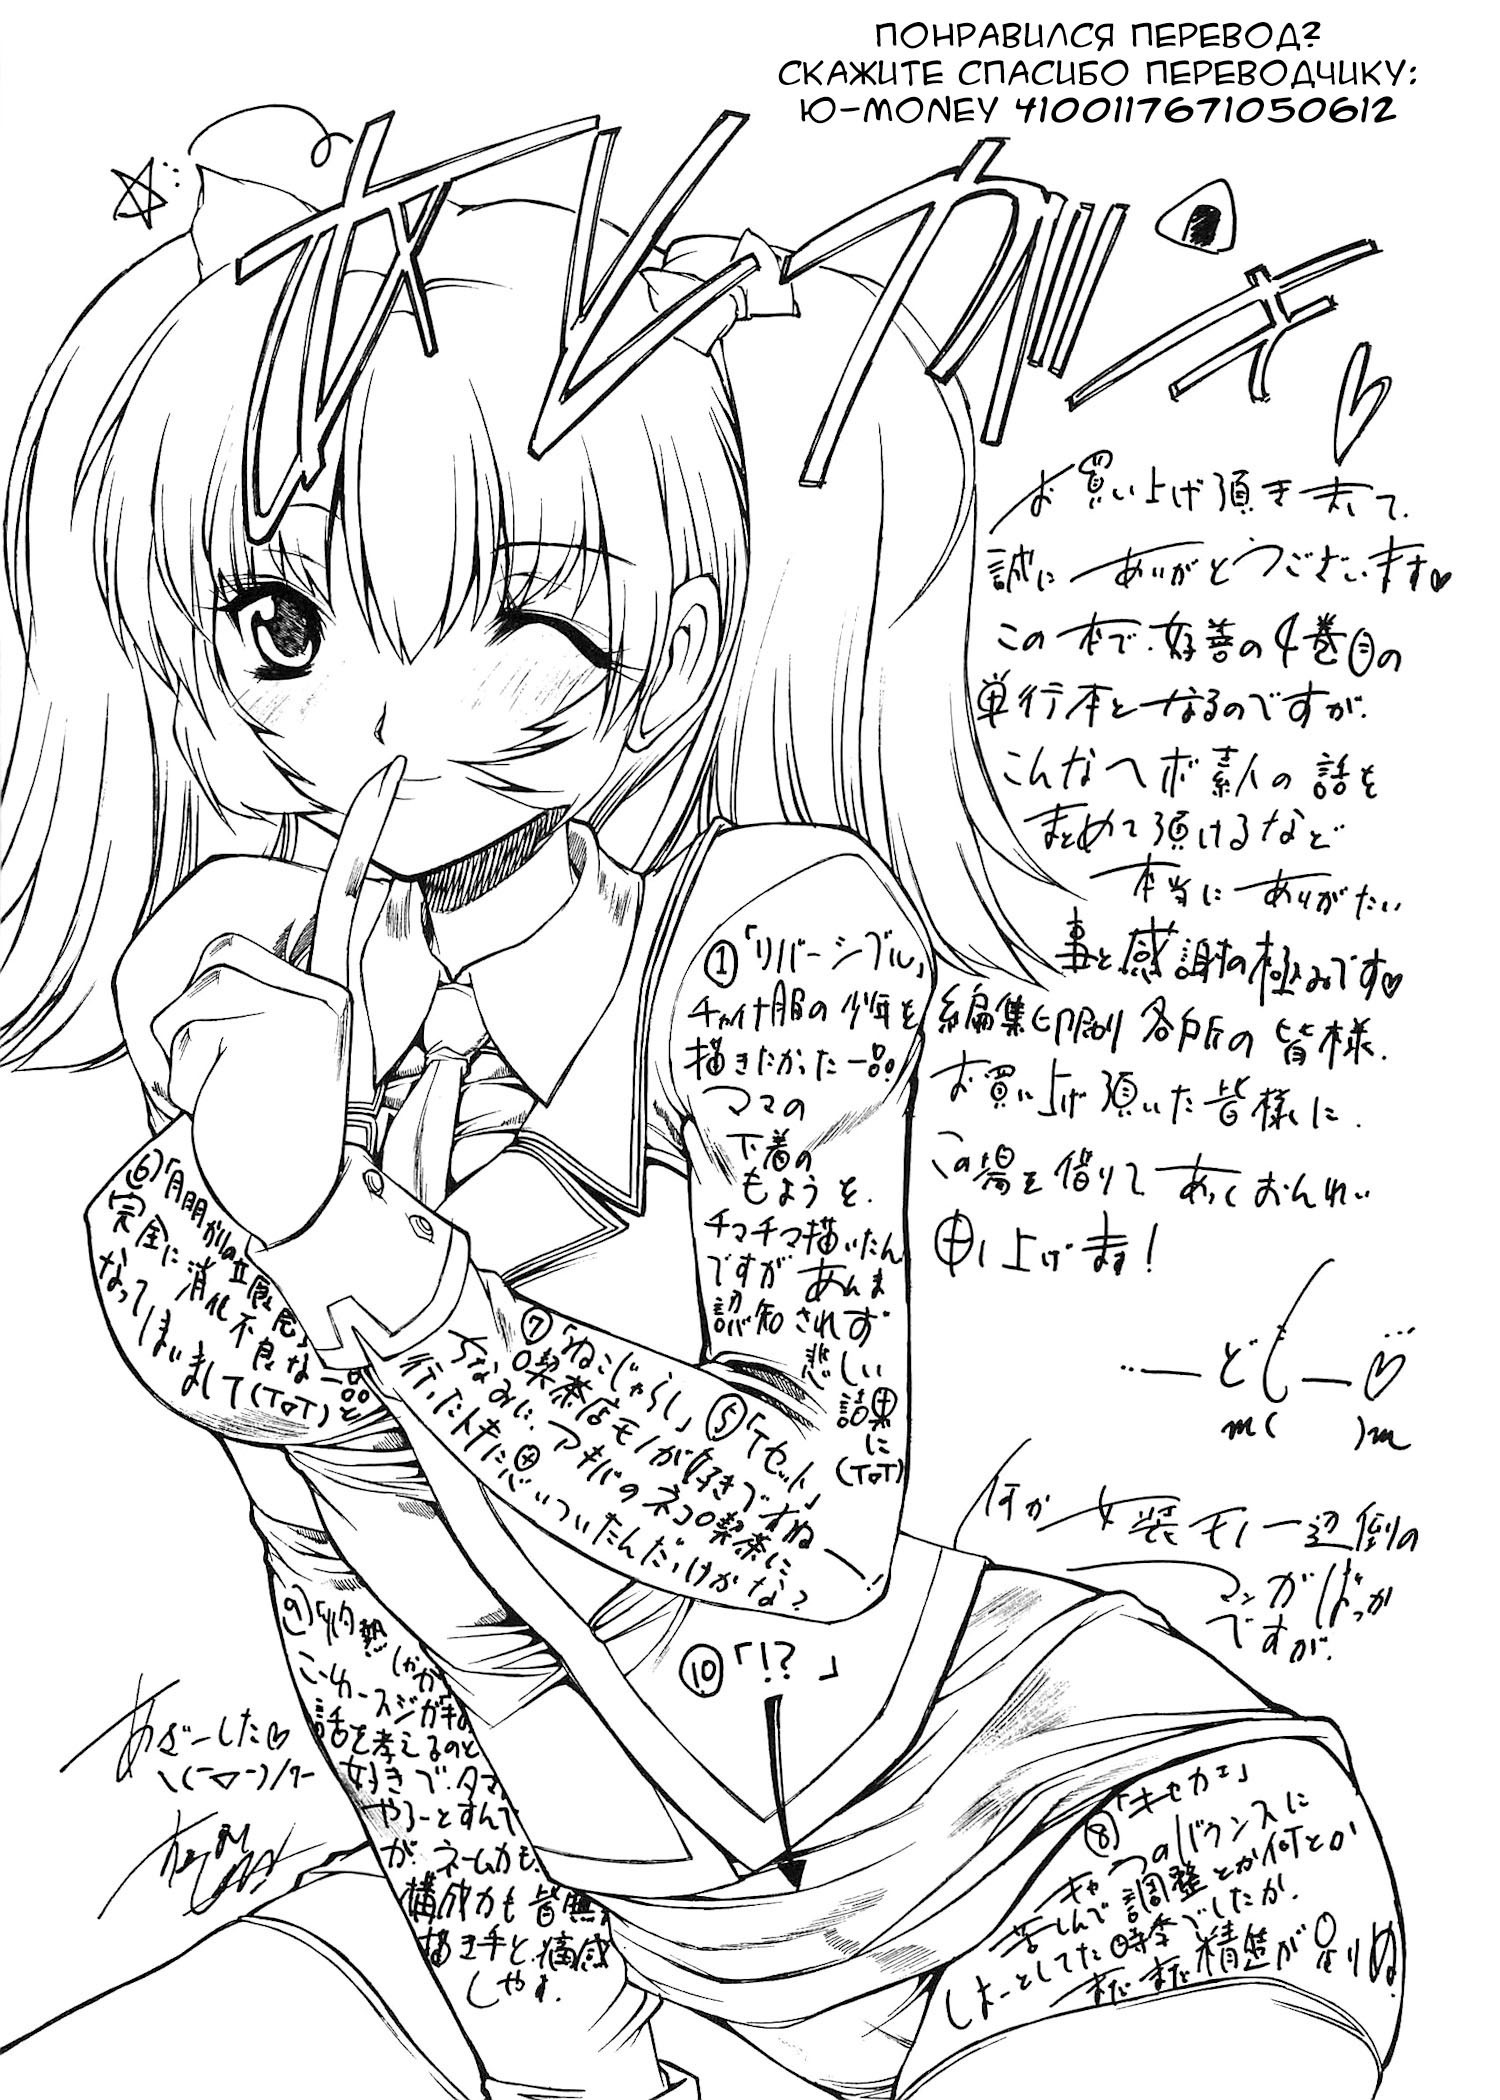 ПОНРАВИЛСЯ ПЕРЕВОД?
СКАЖИТЕ СПАСИБО ПЕРЕВОДЧИКУ:
Ю-MONEY 4100117671050612
オレガキ
お買い上げ頂きまして、
誠にありがとうございます♡
この本で、好善の4巻目の
単行本となるのですが、
こんなヘボ素人の話を
まとめて頂けるなど
本当にありがたい
事と感謝の極みです♡
編集、印刷、各戸所の皆様、
お買い上げ頂いた皆様に、
この場を借りて、あつくおんれい
申し上げます!
…―どしー♡
m( )m
何か女装モノ一辺倒の
マンガばっか
ですが、
①「リバーシブル」
チャイナ服の少年を
描きたかった一品!
ママの
下着の
もようを、
チマチマ描いたん
ですが、あんま
認知されず
悲しい
結果
に
(ToT)
⑤「Tセット」
⑥「月明かりの
完全に消化不良な一品と
なってしまいまして(ToT)
⑦「ねこじゃらし」
喫茶店モノが好きですねー!
ちなみに、アキバのネコ喫茶に
行ったトキに思いついたんだっけかな?
⑧「キャカェ」
キャラのバウンスに
苦しんで調整とか何とか
しよーとしてた時季でしたか、
まだまだ精進が足りぬ
⑨「灼熱
話を考えるのと
好きで、タマ
やろーとすんで
が、ネーム力も、
構成力も皆無
描き手と、痛感
しやす。
⑩「!?」
あざーした♡